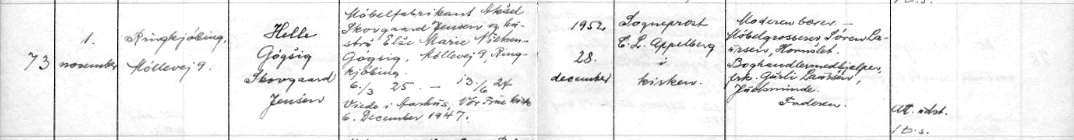 73
1.
november
Ringkjøbing,
Møllevej 9.
Helle
Gógsig
Skovgaard
Jensen
Møbelfabrikant
Skovgaard Jensen og hu-
stru Else Marie Nielsen-
Gógsig, Møllevej 9, Ring-
kjøbing.
6./3 25. — 13/6 24
Viede i Aarhus, Vor Frue kirke
6. December 1947.
1952
28.
december
Sogneprost
C. L. Appelberg
i
kirken.
Moderen bærer. —
Møbelgrosserer Søren La-
ursen, Hornslet.
Boghandlermedhjælper,
frk. Gurli Laursen,
Juelsminde.
Faderen.
Att. udst.
/ D. s.